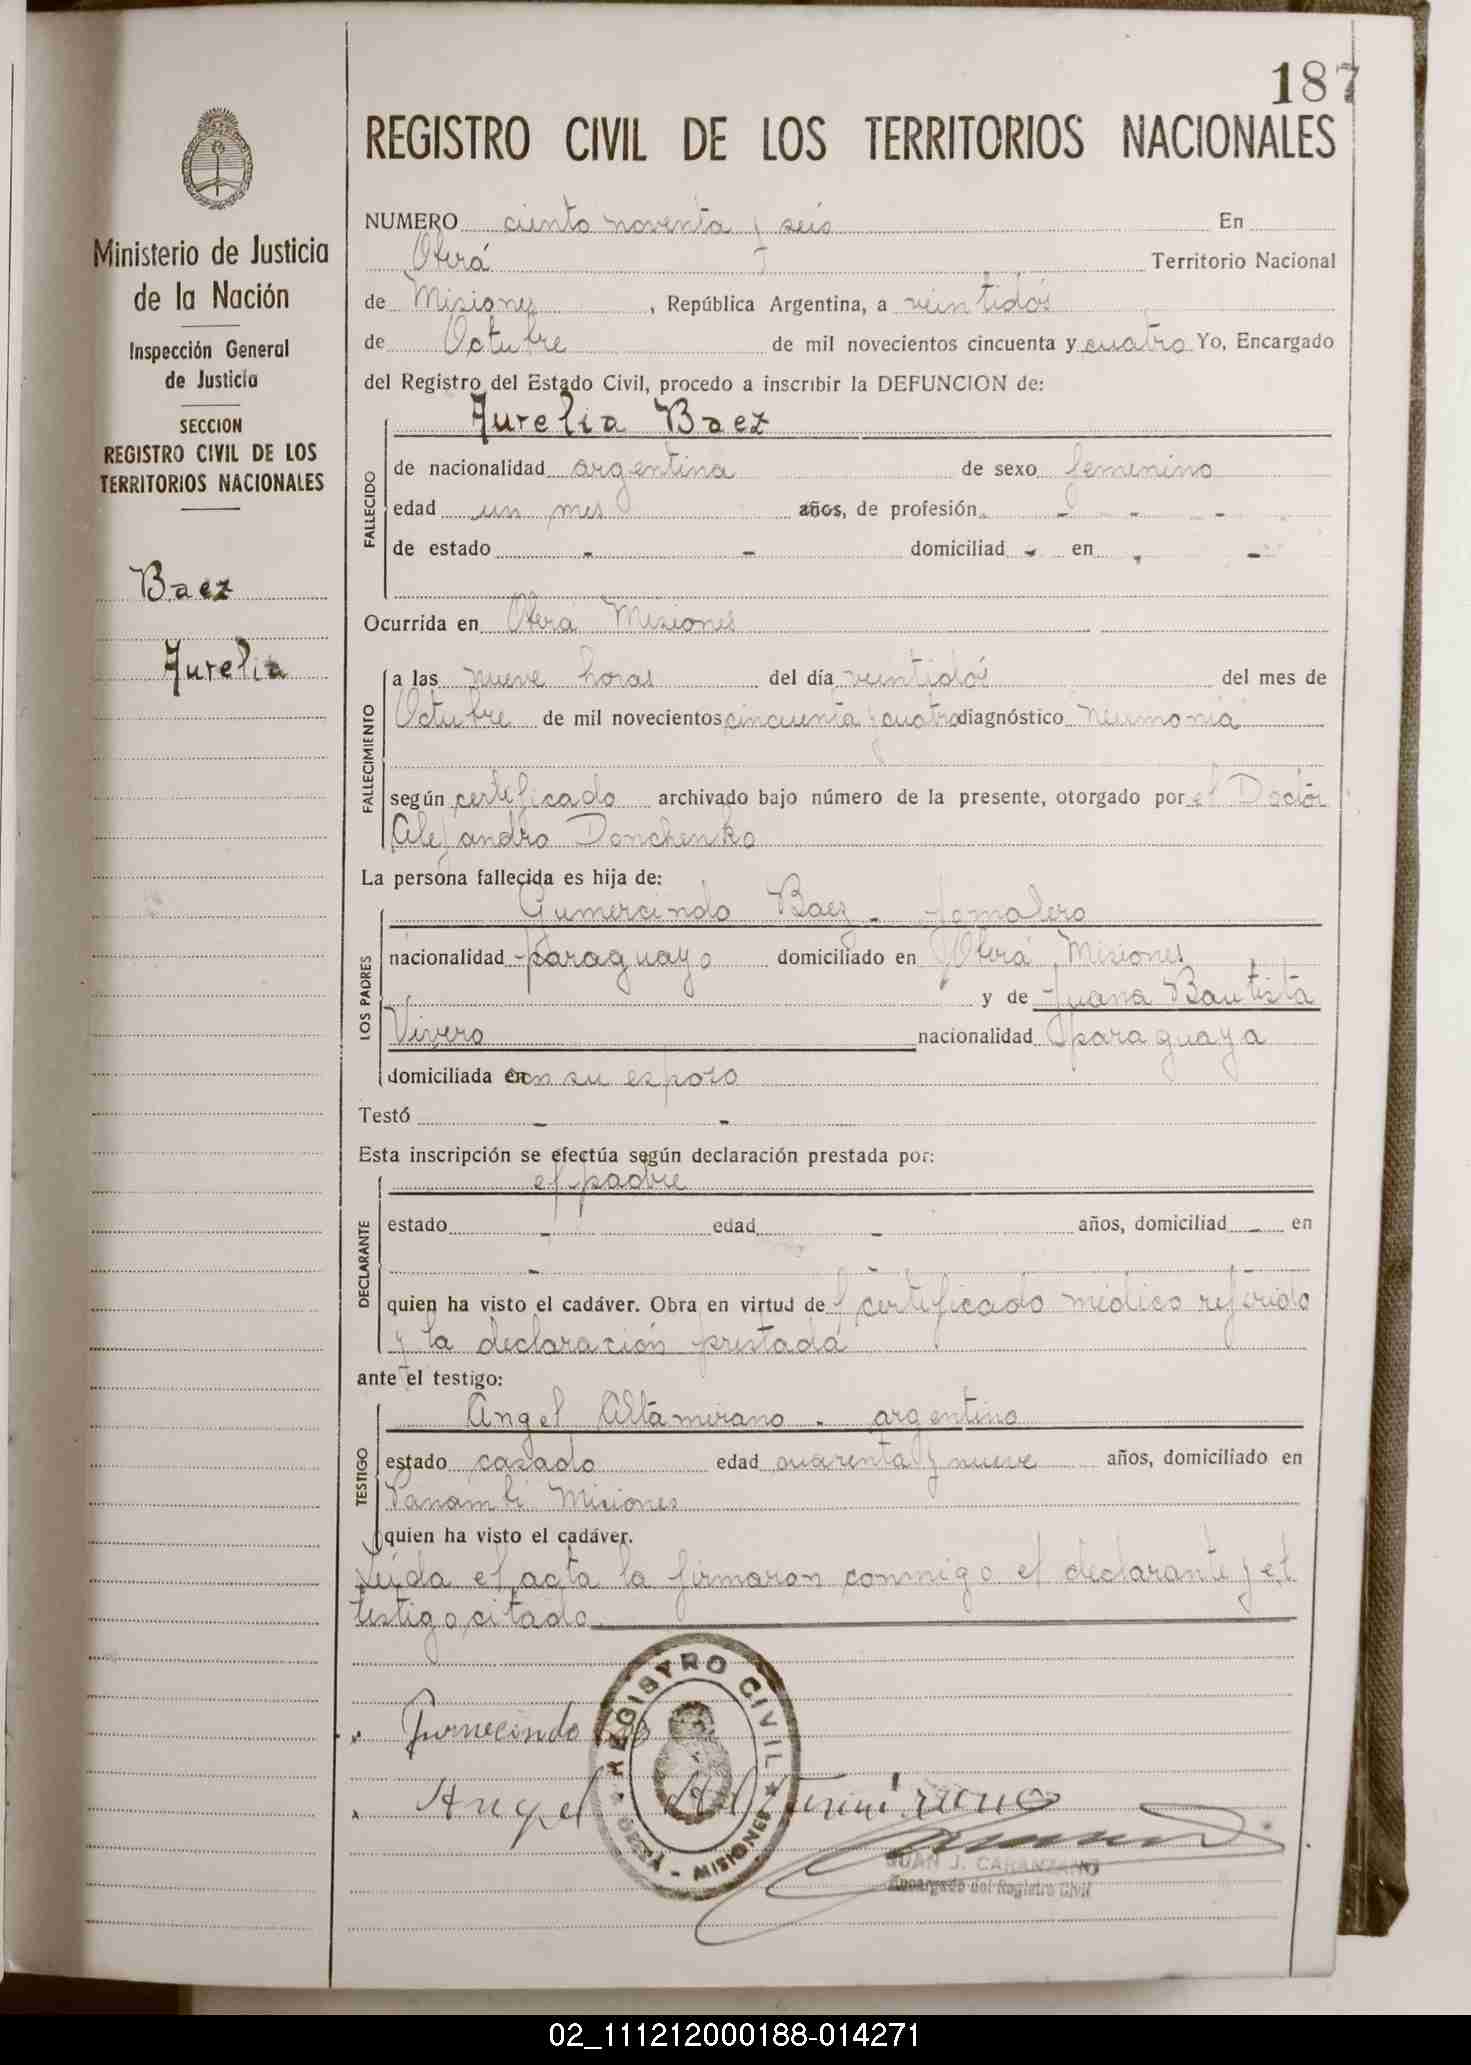 187
REGISTRO CIVIL DE LOS TERRITORIOS NACIONALES
Ministerio de Justicia
de la Nación
Inspección General
de Justicia
SECCION
REGISTRO CIVIL DE LOS
TERRITORIOS NACIONALES
Baez
Aurelia
NUMERO ciento noventa y seis En
Oberá Territorio Nacional
de Misiones, República Argentina, a veintidós
de Octubre de mil novecientos cincuenta y cuatro Yo, Encargado
del Registro del Estado Civil, procedo a inscribir la DEFUNCION de:
Aurelia Baez
FALLECIDO
de nacionalidad argentina de sexo femenino
edad un mes años, de profesión - - -
de estado - - domiciliad - en - -
Ocurrida en Oberá Misiones
FALLECIMIENTO
a las nueve horas del día veintidós del mes de
Octubre de mil novecientos cincuenta y cuatro diagnóstico neumonia
según certificado archivado bajo número de la presente, otorgado por el Doctor
Alejandro Donchenko
La persona fallecida es hija de:
Gumercindo Baez - jornalero
LOS PADRES
nacionalidad paraguayo domiciliado en Oberá Misiones
y de Juana Bautista
Vivero nacionalidad paraguaya
domiciliada en con su esposo
Testó - -
Esta inscripción se efectúa según declaración prestada por:
el padre
DECLARANTE
estado - edad - años, domiciliad - en
-
quien ha visto el cadáver. Obra en virtud del certificado médico referido
y la declaración prestada
ante el testigo:
Angel Altamirano - argentino
TESTIGO
estado casado edad cuarenta y nueve años, domiciliado en
Panambi Misiones
quien ha visto el cadáver.
Leida el acta la firmaron conmigo el declarante y el
testigo citado
Gumercindo
Angel Altamirano
REGISTRO CIVIL
OBERA - MISIONES
JUAN J. CARANZANO
Encargado del Registro Civil
02_111212000188-014271